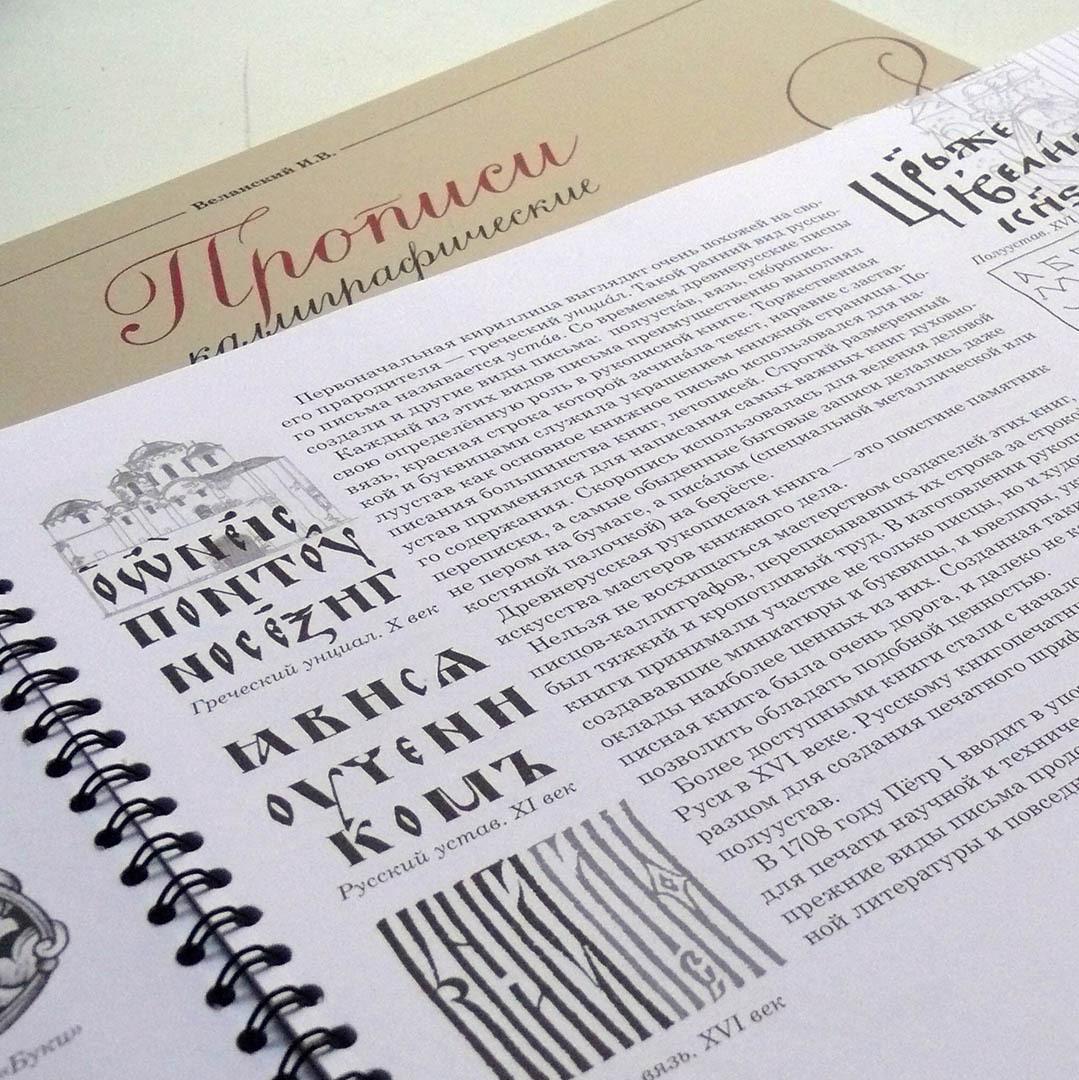 Веланский И.В.
Прописи
каллиграфические
Первоначальная кириллица выглядит очень похожей на сво-
его прародителя — греческий унциал. Такой ранний вид русско-
го письма называется уста́в. Со временем древнерусские писцы
создали и другие виды письма: полууста́в, вязь, ско́ропись.
Каждый из этих видов письма преимущественно выполнял
свою определённую роль в рукописной книге. Торжественная
вязь, красная строка которой зачина́ла текст, наравне с застав-
кой и буквицами служила украшением книжной страницы. По-
лууустав как основное книжное письмо использовался для на-
писания большинства книг, летописей. Строгий размеренный
устав применялся для написания самых важных книг духовно-
го содержания. Скоропись использовалась для ведения деловой
переписки, а самые обыденные бытовые записи делались даже
не пером на бумаге, а писа́лом (специальной металлической или
костяной палочкой) на берёсте.
Древнерусская рукописная книга — это поистине памятник
искусства мастеров книжного дела.
Нельзя не восхищаться мастерством создателей этих книг,
писцов-каллиграфов, переписывавших их строка за строкой
был тяжкий и кропотливый труд. В изготовлении
книги принимали участие не только писцы, но и
создававшие миниатюры и буквицы, и ювелиры,
оклады наиболее ценных из них. Созданная
писная книга была очень дорога, и далеко не
позволить обладать подобной ценностью.
Более доступными книги стали с
Руси в XVI веке. Русскому
разцом для создания печатного
полуустав.
В 1708 году Пётр I вводит в
для печати научной и
прежние виды письма
ной литературы и
Греческий унциал. X век
ꙗвисѧ
оученн
комъ
Русский устав. XI век
вязь. XVI век
Полуустав. XVI
«Буки»